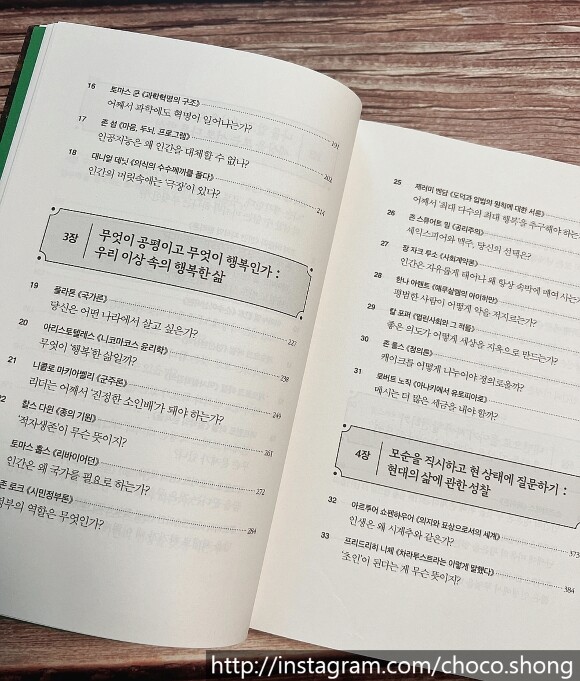 16 토마스 쿤 《과학혁명의 구조》
어째서 과학에도 혁명이 일어나는가? 191
17 존 설 《마음, 두뇌, 프로그램》
인공지능은 왜 인간을 대체할 수 없나? 202
18 대니얼 데닛 《의식의 수수께끼를 풀다》
인간의 머릿속에는 '극장'이 있다? 214
3장 무엇이 공평이고 무엇이 행복인가 :
우리 이상 속의 행복한 삶
19 플라톤 《국가론》
당신은 어떤 나라에서 살고 싶은가? 227
20 아리스토텔레스 《니코마코스 윤리학》
무엇이 '행복'한 삶일까? 238
21 니콜로 마키아벨리 《군주론》
리더는 어째서 '진정한 소인배'가 돼야 하는가? 249
22 찰스 다윈 《종의 기원》
'적자생존'이 무슨 뜻이지? 261
토마스 홉스 《리바이어던》
인간은 왜 국가를 필요로 하는가? 272
존 로크 《시민정부론》
정부의 역할은 무엇인가? 284
25 제러미 벤담 《도덕과 입법의 원칙에 대한 서론》
어째서 '최대 다수의 최대 행복'을 추구해야 하는
26 존 스튜어트 밀 《공리주의》
셰익스피어와 맥주, 당신의 선택은?
27 장 자크 루소 《사회계약론》
인간은 자유롭게 태어나 왜 항상 속박에 매여 사는
28 한나 아렌트 《예루살렘의 아이히만》
평범한 사람이 어떻게 악을 저지르는가?
29 칼 포퍼 《열린사회와 그 적들》
좋은 의도가 어떻게 세상을 지옥으로 만드는가?
30 존 롤스 《정의론》
케이크를 어떻게 나누어야 정의로울까?
31 로버트 노직 《아나키에서 유토피아로》
메시는 더 많은 세금을 내야 할까?
4장 모순을 직시하고 현 상태에 질문하기 :
현대의 삶에 관한 성찰
32 아르투어 쇼펜하우어 《의지와 표상으로서의 세계》
인생은 왜 시계추와 같은가? 373
33 프리드리히 니체 《차라투스트라는 이렇게 말했다》
'초인'이 된다는 게 무슨 뜻이지? 384
http://instagram.com/choco.shong